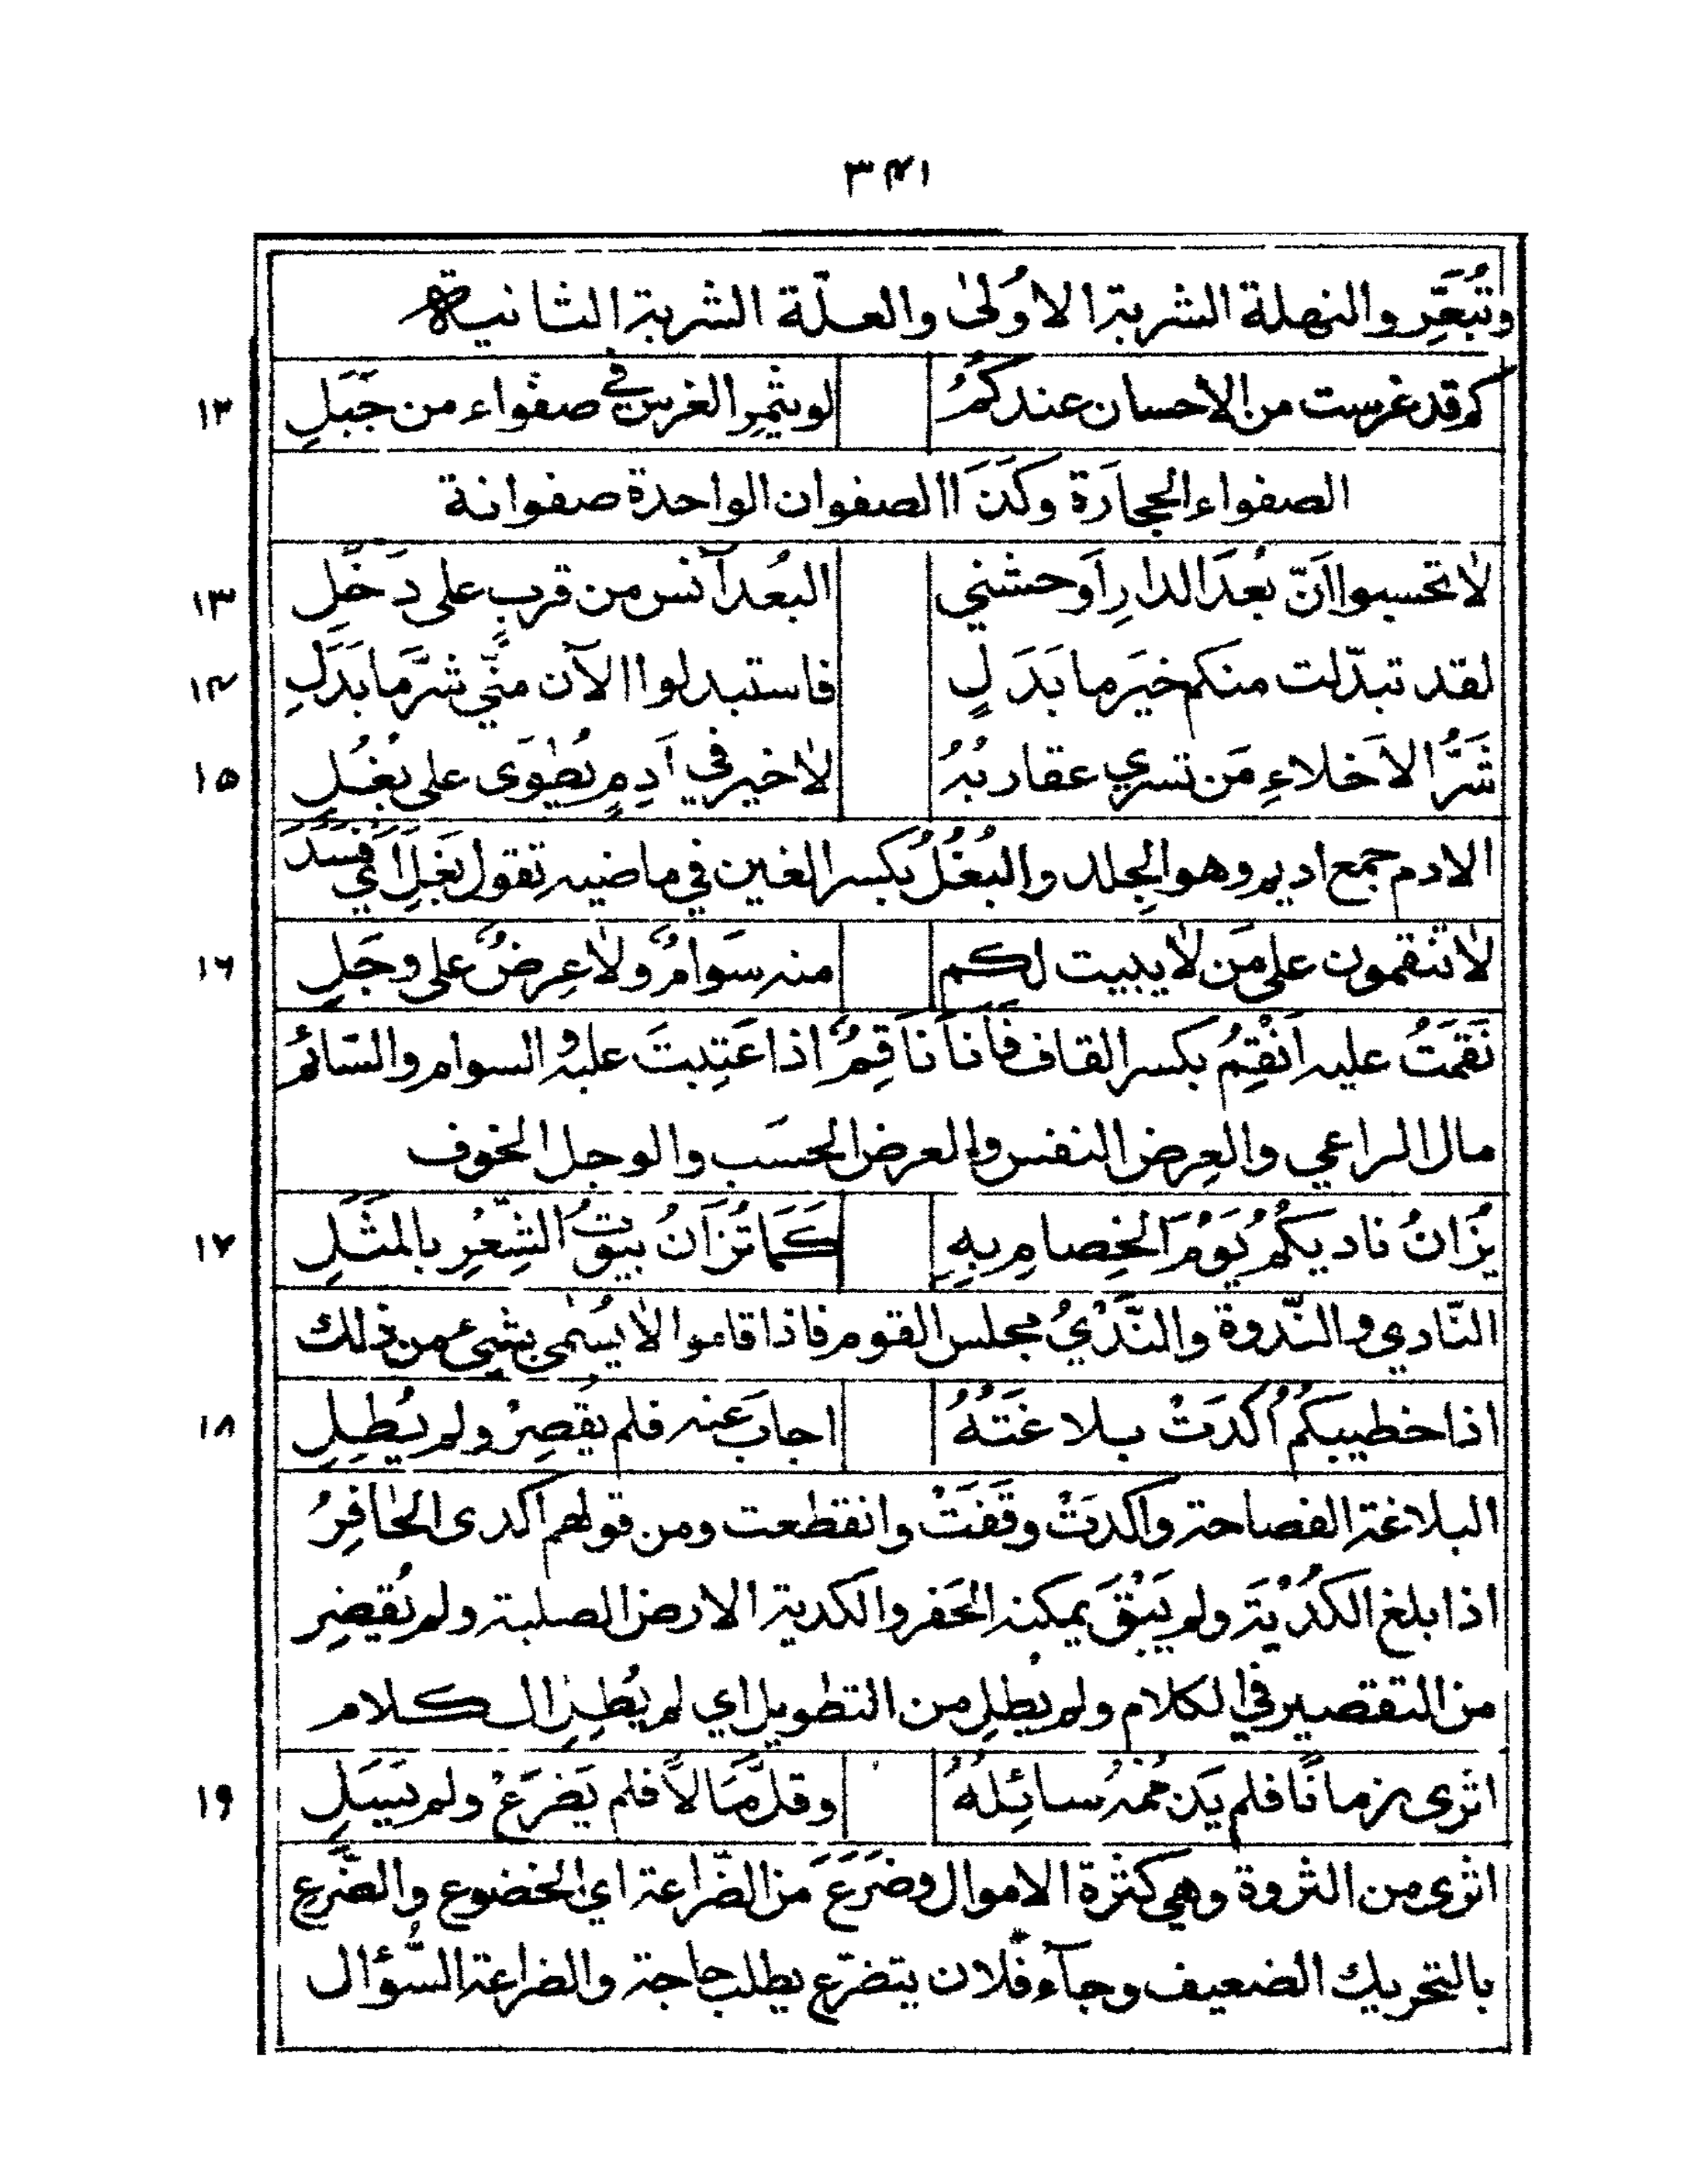 ٣٤١
وتُبُعِّر والنهلة الشربة الاُولىٰ والعلّة الشربة الثانية
كم قد غرست من الاحسان عندكمُ لو يثمِر الغرس في صفواء من جَبَلِ ١٢
الصفواء الحجارَة وكَذَا الصفوان الواحدة صفوانة
لا تحسبوا اَنّ بُعدَ الدارِ اَوحشني البُعد آنس من قربٍ على دَخَلِ ١٣
لقد تبدّلت منكم خيَر ما بَدَلٍ فاستبدلوا الآن منّي شرَّ ما بَدَلِ ١٤
شَرُّ الاَخلاءِ مَن تسري عقاربُهُ لا خير في اَدِمٍ يُطوَى على نغَلِ ١٥
الادم جمع اديم وهو الجِلد والنُغُلُ بكسر الغين في ماضيه تقول نَغَلِ اَي فَسَدَ
لا تنقمون على مَن لا يبيت لكم منه سَوامٌ ولا عِرضٌ على وجَلِ ١٦
نَقَمَتُ عليه اَنقِمُ بكسر القاف فاَنا ناقِمٌ اذا عَتِبتَ عليه و السوام والسّائم
مال الراعي والعِرض النفس والعرض الحسَب والوجل الخوف
يُزَانُ ناديكُمُ يَوْمَ الخِصامِ بِهِ كَمَا تُزَانُ بيوتُ الشِّعْرِ بالمثَلِ ١٧
النّادي والنّدوة والنَّدْيُ مجلس القوم فاذا قاموا لا يُسَمى بشيء من ذلك
اذا خطيبكُمُ اُكدَتْ بلاغَتُهُ اجابَ عنه فلم يُقصِرْ ولم يُطِلِ ١٨
البلاغة الفصاحة واكدَتْ وقَفَتْ وانقطعت ومن قولهم اكدى الحَافِرُ
اذا بلغ الكُدْيَةَ ولم يَبْقَ يمكنه الحَفر والكدية الارض الصلبة ولم يُقصِر
من التقصير في الكلام ولم يُطِلِ من التطويل اي لم يُطِلِ الكلام
اثرى زمانًا فلم يَذمُمهُ سائِلُهُ وقلّ مَالاً فلم يَضرَعْ ولم يَسَلِ ١٩
اثرى من الثروة وهي كثرة الاموال وضَرَعَ مَن الضّراعة اي الخضوع والضَّرع
بالتحريك الضعيف وجآء فُلان يتضرّع يطلب حاجة والضراعة السُّؤال